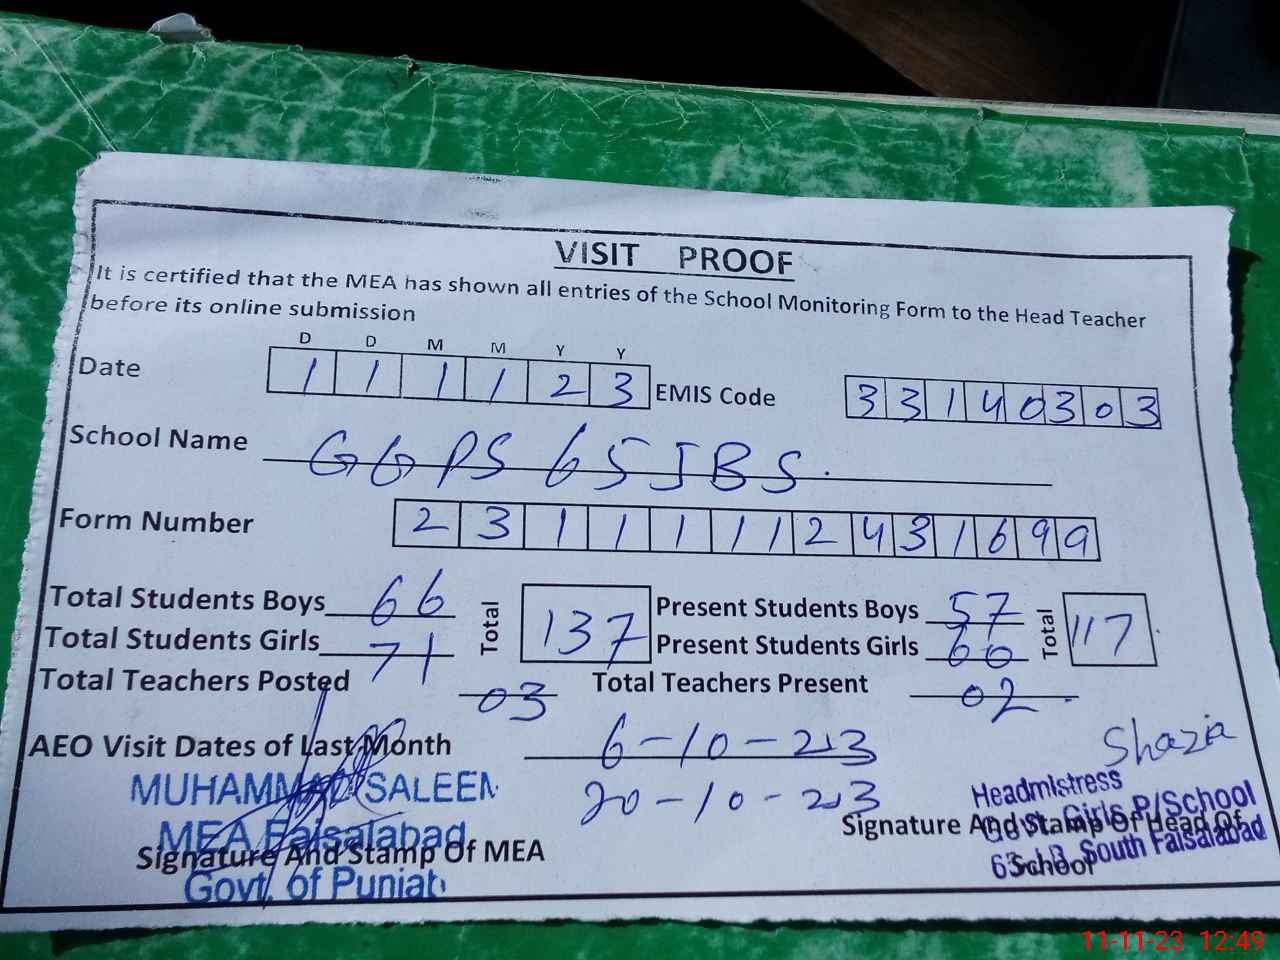 VISIT PROOF
It is certified that the MEA has shown all entries of the School Monitoring Form to the Head Teacher
before its online submission
D D M M Y Y
Date 1 1 1 1 2 3 EMIS Code 3 3 1 4 0 3 0 3
School Name GGPS 65 JBS.
Form Number 2 3 1 1 1 1 1 2 4 3 1 6 9 9
Total Students Boys 66 Total 137 Present Students Boys 57 Total 117
Total Students Girls 71 Present Students Girls 60
Total Teachers Posted 03 Total Teachers Present 02
AEO Visit Dates of Last Month 6-10-23
20-10-23
Shazia
MUHAMMAD SALEEM
MEA Faisalabad
Govt. of Punjab
Signature And Stamp Of MEA
Headmistress
Govt. Girls P/School
South Faisalabad
Signature And Stamp Of Head Of
School
11-11-23 12:49